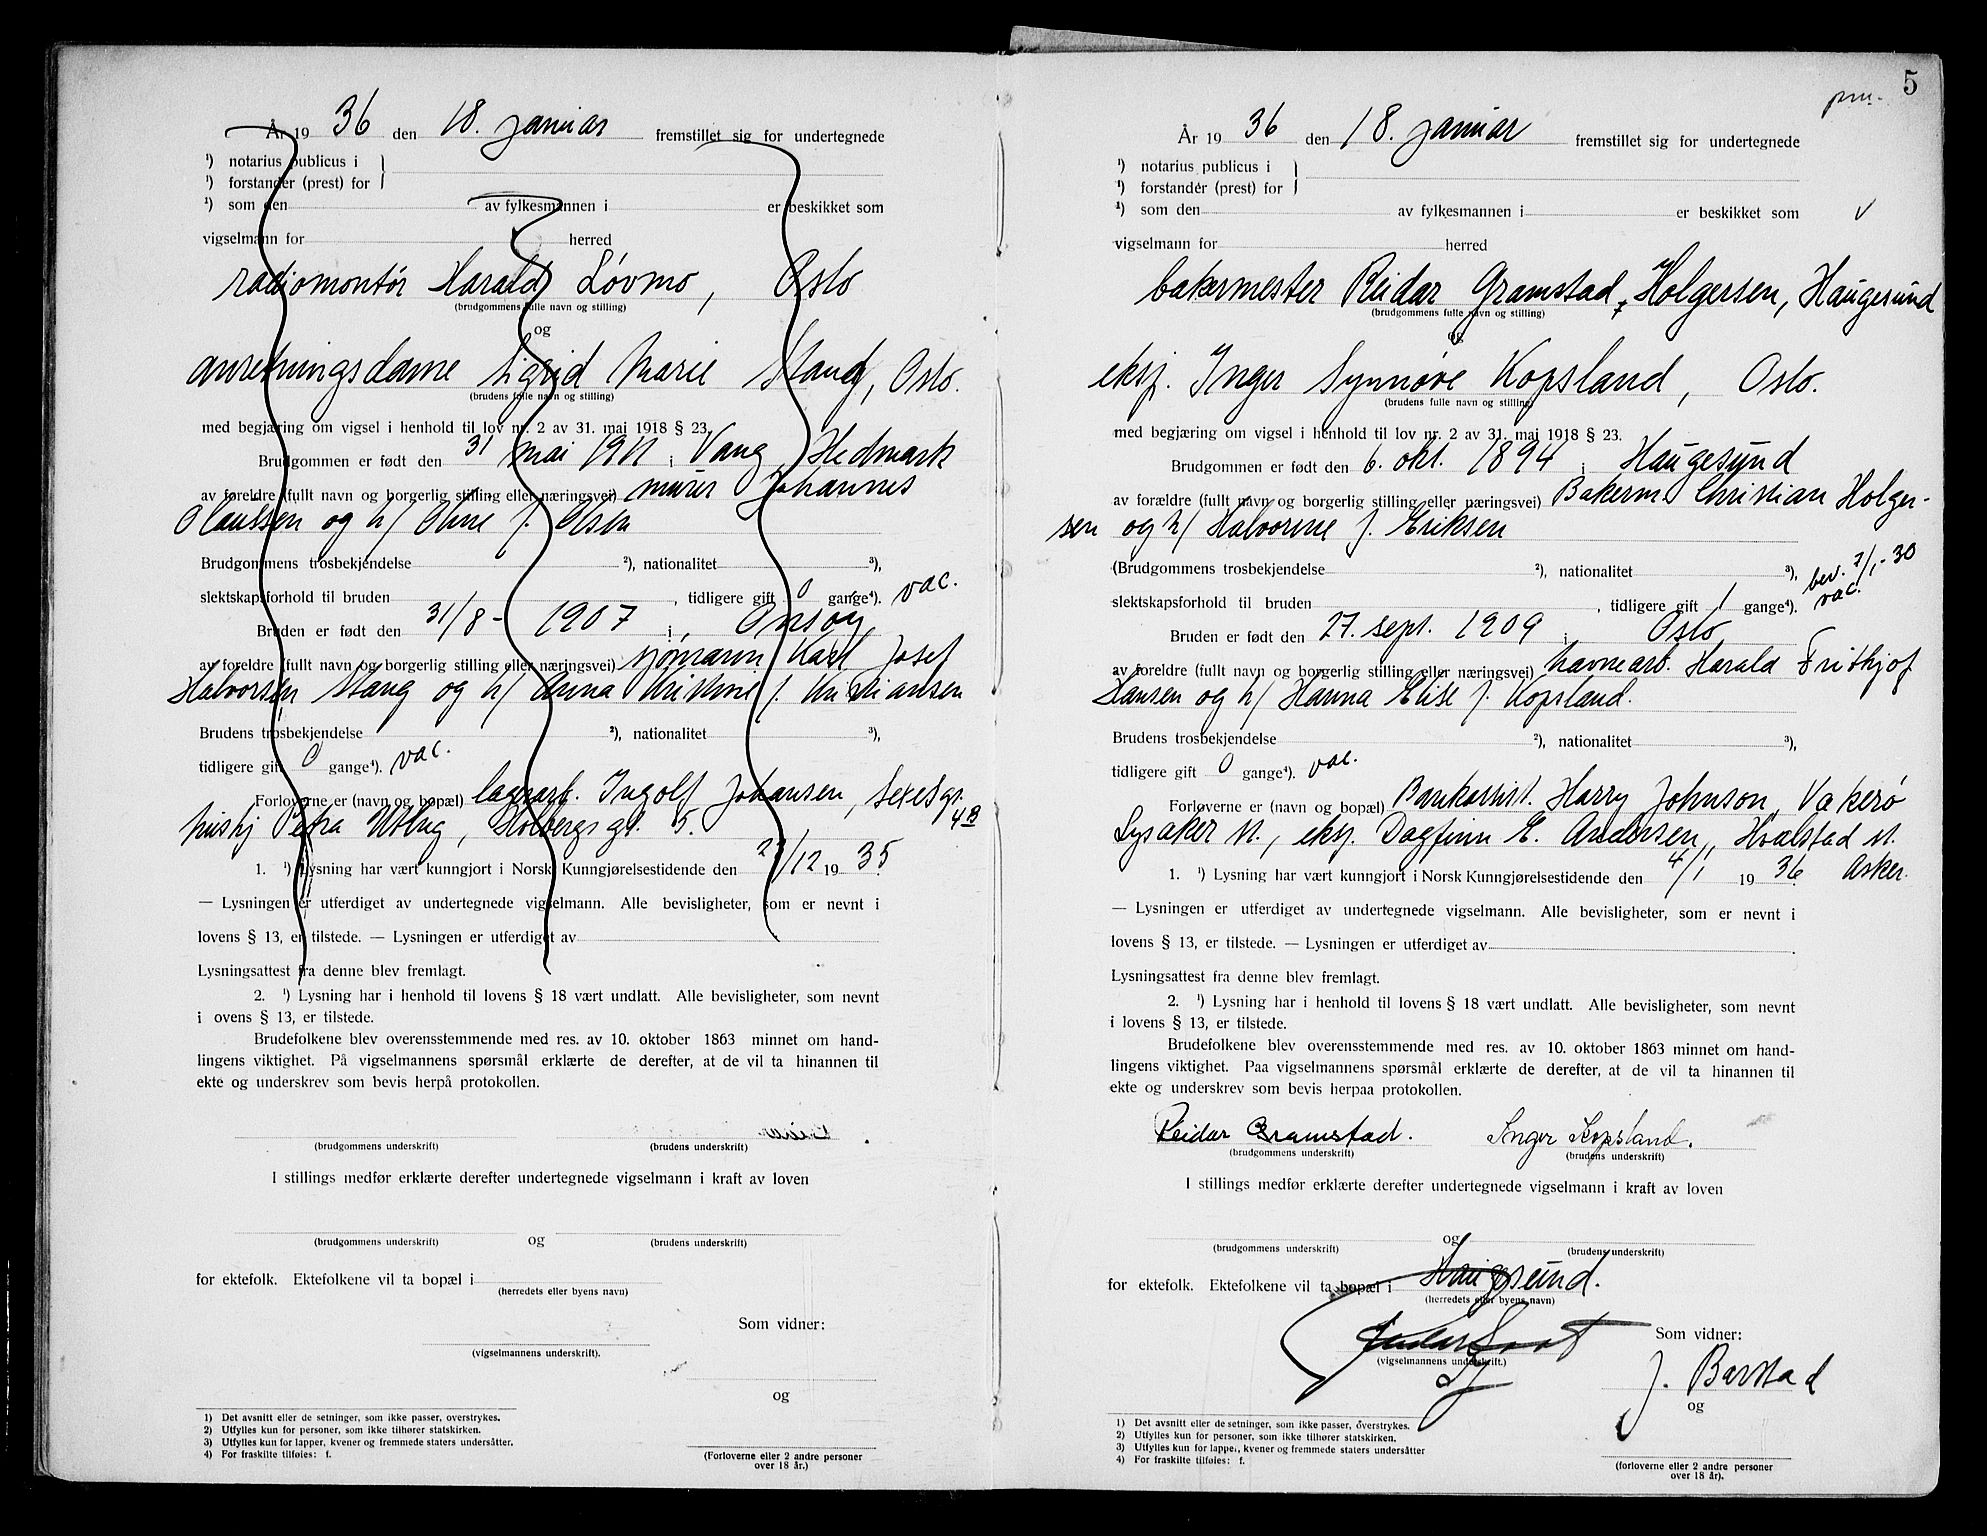 År 19 36 den 18. januar fremstillet sig for undertegnede
¹) notarius publicus i
¹) forstander (prest) for
¹) som den av fylkesmannen i er beskikket som
vigselmann for herred
radiomontør Harald Løvmo, Oslo
(brudgommens fulle navn og stilling)
og
anretningsdame Sigrid Marie Stang, Oslo.
(brudens fulle navn og stilling)
med begjæring om vigsel i henhold til lov nr. 2 av 31. mai 1918 § 23.
Brudgommen er født den 31 mai 1911 i Vang, Hedmark
av foreldre (fullt navn og borgerlig stilling eller næringsvei) murer Johannes
Olaussen og h/ Oline f. Olsen
Brudgommens trosbekjendelse ²), nationalitet ³),
slektskapsforhold til bruden , tidligere gift 0 gange⁴). vac.
Bruden er født den 31/8 - 1907 i Onsøy
av foreldre (fullt navn og borgerlig stilling eller næringsvei) sjømann Karl Josef
Halvorsen Stang og h/ Anna Kristine f. Kristiansen
Brudens trosbekjendelse ²), nationalitet ³),
tidligere gift 0 gange⁴). vac.
Forloverne er (navn og bopæl) lagerarb. Ingolf Johansen, Sexesgt.
4B
hushj Petra Utlug, Holbergs gt. 5.
1. ¹) Lysning har vært kunngjort i Norsk Kunngjørelsestidende den 27/12 19 35
— Lysningen er utferdiget av undertegnede vigselmann. Alle bevisligheter, som er nevnt i
lovens § 13, er tilstede. — Lysningen er utferdiget av
Lysningsattest fra denne blev fremlagt.
2. ¹) Lysning har i henhold til lovens § 18 vært undlatt. Alle bevisligheter, som nevnt
i ovens § 13, er tilstede.
Brudefolkene blev overensstemmende med res. av 10. oktober 1863 minnet om hand-
lingens viktighet. På vigselmannens spørsmål erklærte de derefter, at de vil ta hinannen til
ekte og underskrev som bevis herpå protokollen.
(brudgommens underskrift) (brudens underskrift)
I stillings medfør erklærte derefter undertegnede vigselmann i kraft av loven
og
(brudgommens underskrift) (brudens underskrift)
for ektefolk. Ektefolkene vil ta bopæl i
(herredets eller byens navn)
Som vidner:
(vigselmannens underskrift).
og
1) Det avsnitt eller de setninger, som ikke passer, overstrykes.
2) Utfylles kun for personer, som ikke tilhører statskirken.
3) Utfylles kun for lapper, kvener og fremmede staters undersåtter.
4) For fraskilte tilføies: f.
(Forloverne eller 2 andre personer
over 18 år.)
5
År 19 36 den 18. januar fremstillet sig for undertegnede
¹) notarius publicus i
¹) forstander (prest) for
¹) som den av fylkesmannen i er beskikket som v
vigselmann for herred
bakermester Reidar Gramstad Holgersen, Haugesund
(brudgommens fulle navn og stilling)
og
eksp. Inger Synnøve Kopsland, Oslo.
(brudens fulle navn og stilling)
med begjæring om vigsel i henhold til lov nr. 2 av 31. mai 1918 § 23.
Brudgommen er født den 6. okt. 1894 i Haugesund
av forældre (fullt navn og borgerlig stilling eller næringsvei) Bakerm. Christian Holger-
sen og h/ Halvorine f. Eriksen
(Brudgommens trosbekjendelse ²), nationalitet ³),
bev. 7/1-30
slektskapsforhold til bruden , tidligere gift 1 gange⁴). vac.
Bruden er født den 27. sept. 1909 i Oslo
av foreldre (fullt navn og borgerlig stilling eller næringsvei) havnearb. Harald Frithjof
Hansen og h/ Hanna Elise f. Kopsland.
Brudens trosbekjendelse ²), nationalitet ³),
tidligere gift 0 gange⁴). vac.
Forløverne er (navn og bopæl) Bankassist. Harry Johnson, Vakerø
Lysaker st., eksp. Dagfinn E. Andersen, Hvalstad st.
Asker.
1. ¹) Lysning har vært kunngjort i Norsk Kunngjørelsestidende den 4/1 19 36
— Lysningen er utferdiget av undertegnede vigselmann. Alle bevisligheter, som er nevnt i
lovens § 13, er tilstede. — Lysningen er utferdiget av
Lysningsattest fra denne blev fremlagt.
2. ¹) Lysning har i henhold til lovens § 18 vært undlatt. Alle bevisligheter, som nevnt
i lovens § 13, er tilstede.
Brudefolkene blev overensstemmende med res. av 10. oktober 1863 minnet om hand-
lingens viktighet. Paa vigselmannens spørsmål erklærte de derefter, at de vil ta hinannen til
ekte og underskrev som bevis herpaa protokollen.
Reidar Gramstad. Inger Kopsland.
(brudgommens underskrift) (brudens underskrift)
I stillings medfør erklærte derefter undertegnede vigselmann i kraft av loven
og
(brudgommens underskrift) (brudens underskrift)
for ektefolk. Ektefolkene vil ta bopæl i Haugesund.
(herredets eller byens navn)
Som vidner:
(vigselmannens underskrift.)
J. Barstad
og
1) Det avsnitt eller de setninger, som ikke passer, överstrykes.
2) Utfylles kun for personer, som ikke tilhører statskirken.
3) Utfylles kun for lapper, kvener og fremmede staters undersåtter
4) For fraskilte tilføies: f.
(forloverne eller 2 andre personer
over 18 år).